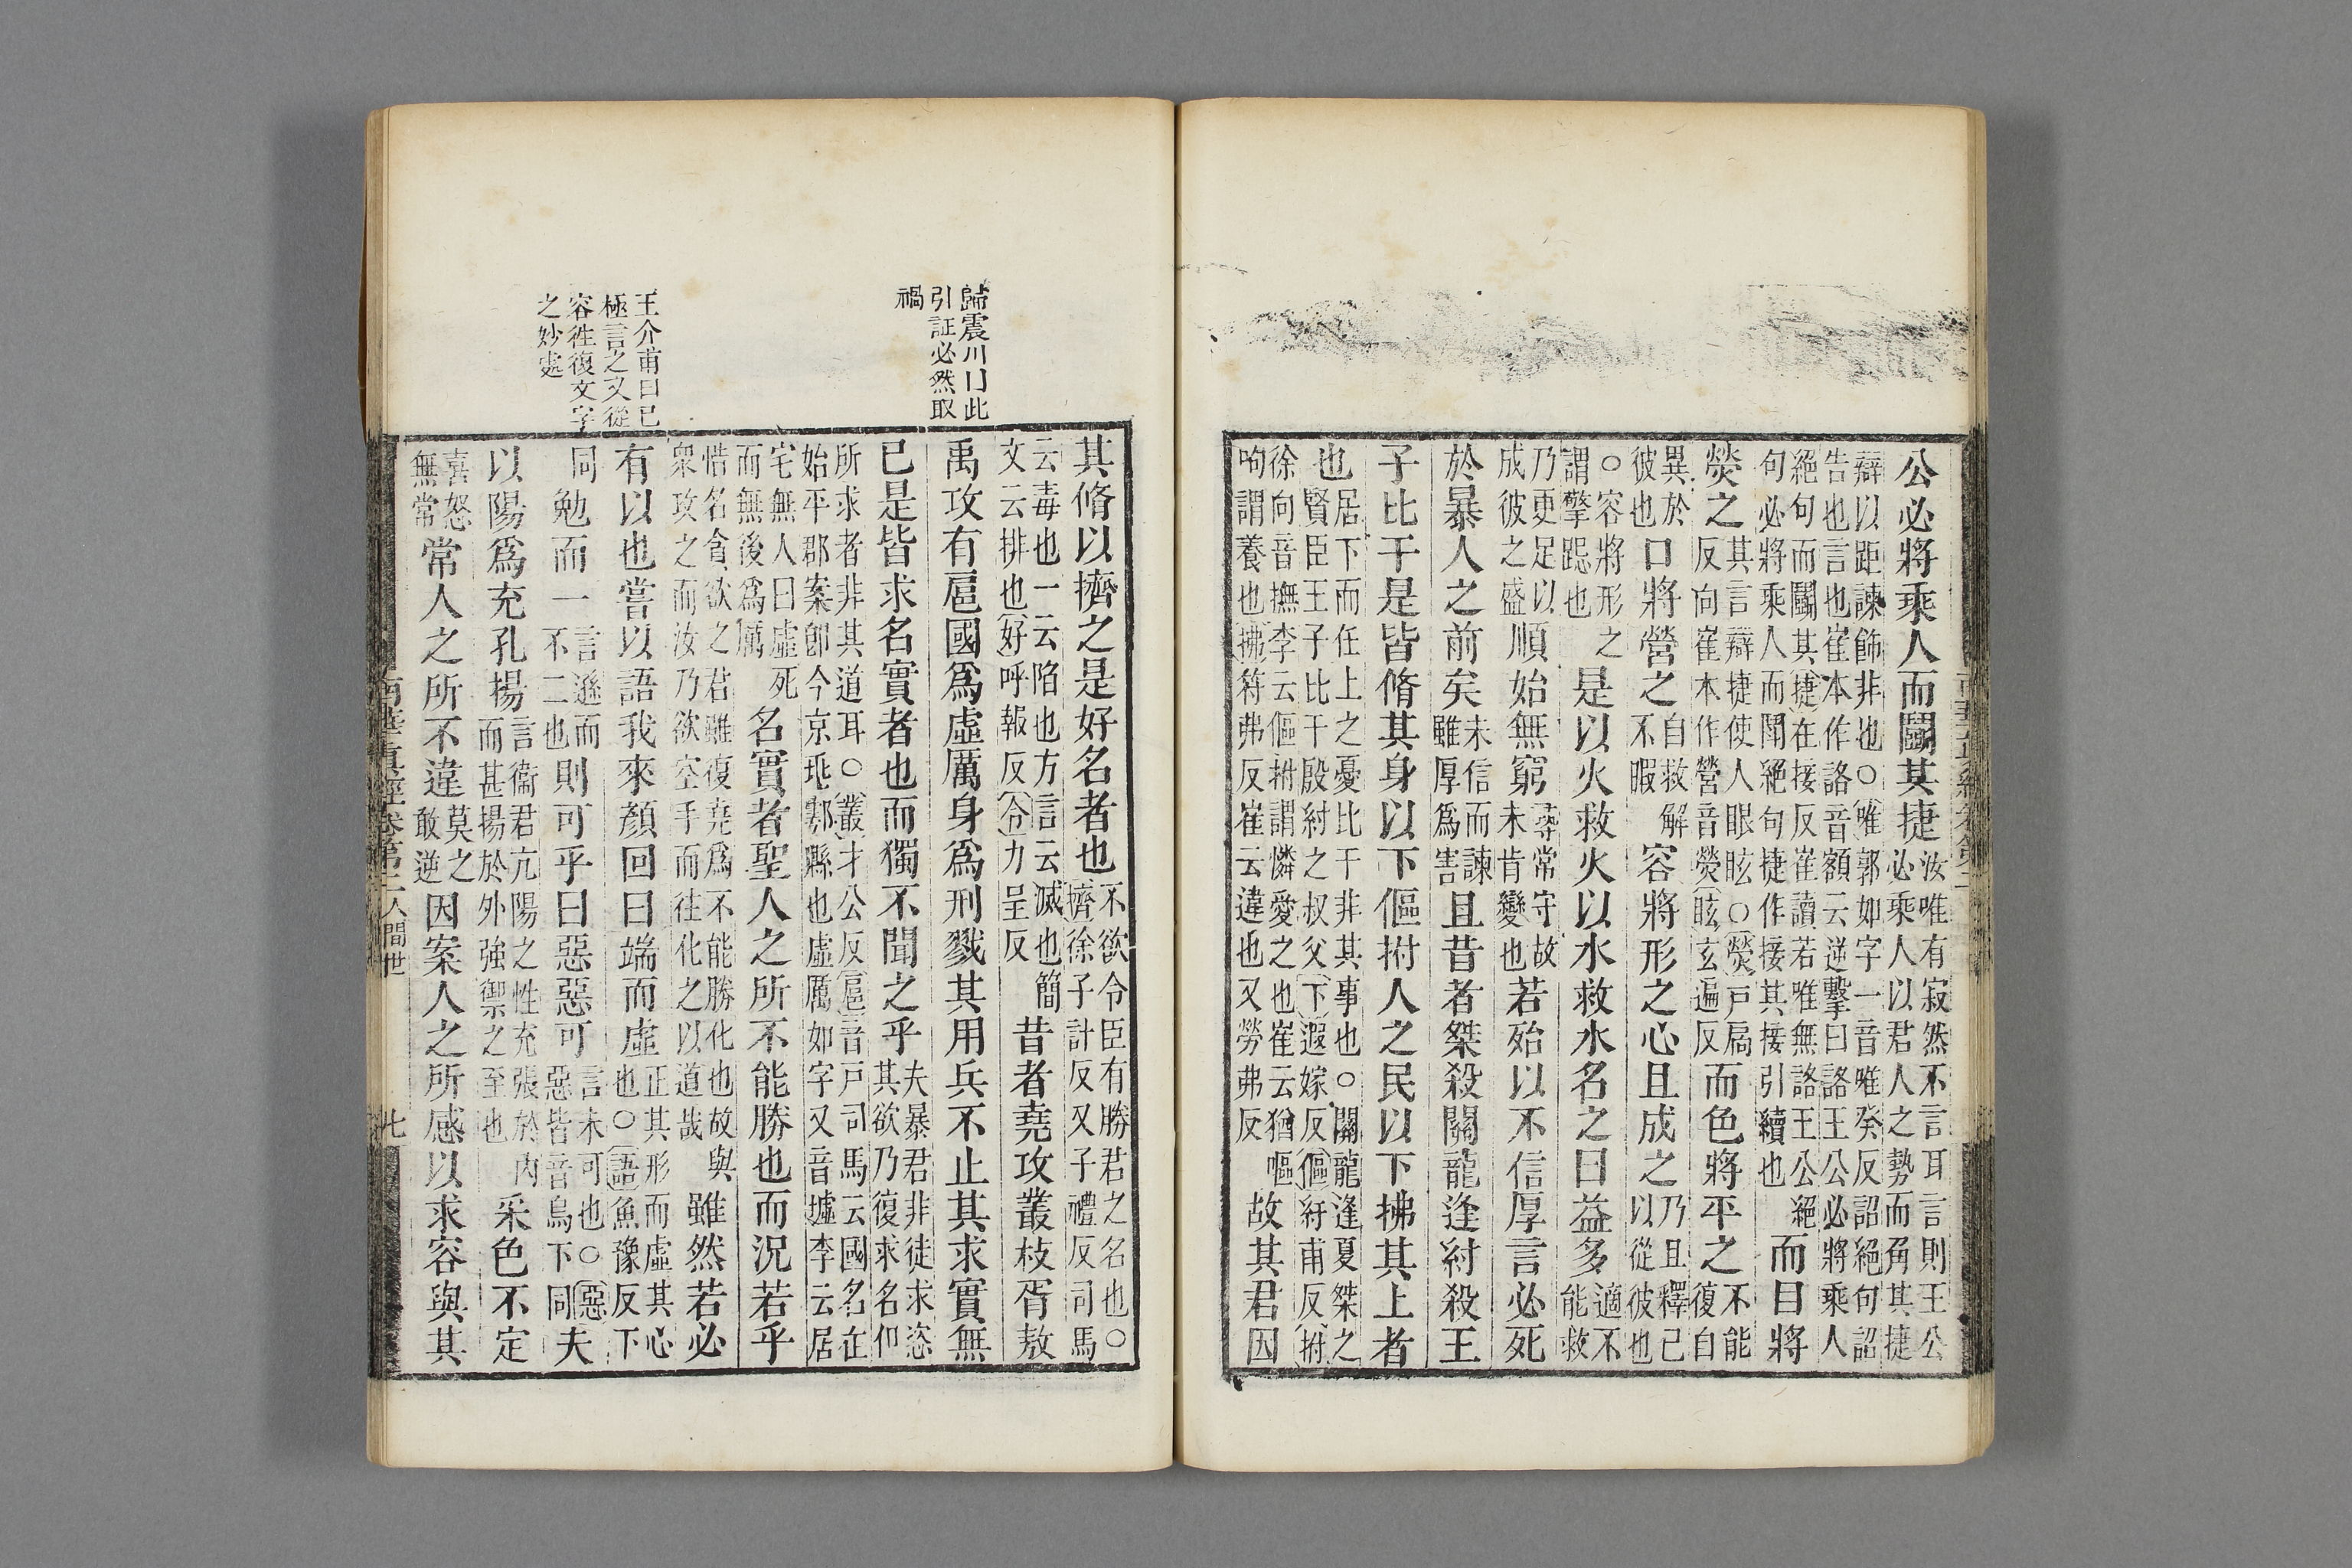 公必將乘人而鬭其捷汝唯有寂然不言耳言則王公必乘人以君人之勢而角其捷
辯以距諫飾非也○唯郭如字一音唯癸反詔絕句詔告也言也崔本作詻音額云逆擊曰詻王公必將乘人
絕句而鬭其捷在接反崔讀若唯無詻王公絕句必將乘人而鬭絕句捷作接其接引續也而目將
熒之其言辯捷使人眼眩○熒戸扃反向崔本作營音熒眩玄遍反而色將平之不能復自
異於彼也口將營之自救解不暇容將形之心且成之乃且釋己以從彼也
○容將形之謂擎跽也是以火救火以水救水名之曰益多適不能救
乃更足以成彼之盛順始無窮尋常守故未肯變也若殆以不信厚言必死
於暴人之前矣未信而諫雖厚爲害且昔者桀殺關龍逢紂殺王
子比干是皆脩其身以下傴拊人之民以下拂其上者
也居下而任上之憂比干非其事也○關龍逢夏桀之賢臣王子比干殷紂之叔父下遐嫁反傴紆甫反拊
徐向音撫李云傴拊謂憐愛之也崔云猶嘔呴謂養也拂符弗反崔云違也又勞弗反故其君因
歸震川曰此
引証必然取
禍
王介甫曰已
極言之又從
容徃復文字
之妙處
其脩以擠之是好名者也不欲令臣有勝君之名也○擠徐子計反又子禮反司馬
云毒也一云陷也方言云滅也簡文云排也好呼報反令力呈反昔者堯攻叢枝胥敖
禹攻有扈國爲虛厲身爲刑戮其用兵不止其求實無
已是皆求名實者也而獨不聞之乎夫暴君非徒求恣其欲乃復求名但
所求者非其道耳○叢才公反扈音戸司馬云國名在始平郡案卽今京兆鄠縣也虛厲如字又音墟李云居
宅無人曰虛死而無後爲厲名實者聖人之所不能勝也而況若乎
惜名貪欲之君雖復堯爲不能勝化也故與衆攻之而汝乃欲空手而徃化之以道哉雖然若必
有以也嘗以語我來顏回曰端而虛正其形而虛其心也○語魚豫反下
同勉而一言遜而不二也則可乎曰惡惡可言未可也○惡惡皆音烏下同夫
以陽爲充孔揚言衞君亢陽之性充張於內而甚揚於外強禦之至也采色不定
喜怒無常常人之所不違莫之敢逆因案人之所感以求容與其
南華眞經卷第二人間世 七